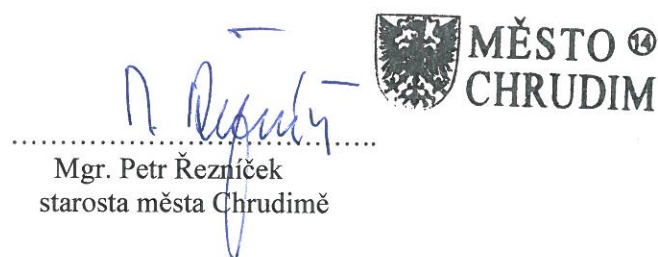 MĚSTO ⑭
CHRUDIM
Mgr. Petr Řezníček
starosta města Chrudimě